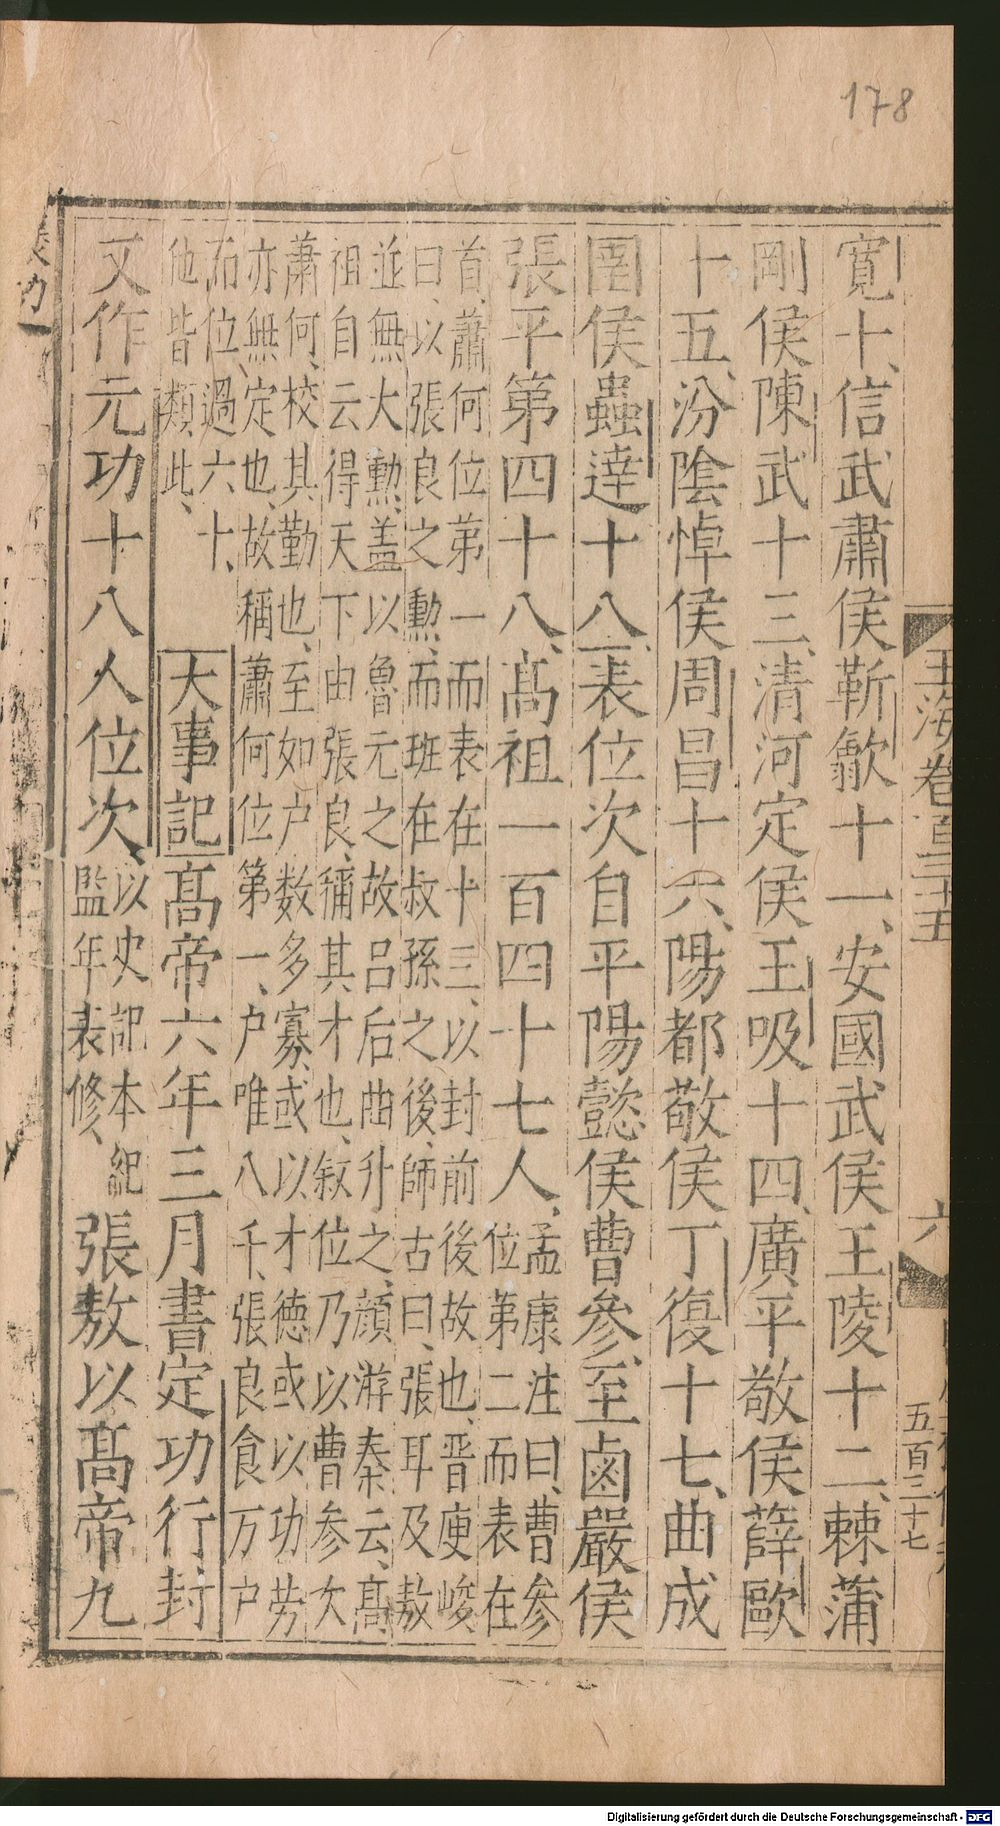 178
玉海卷百三十五
六
五百三十七
寛十、信武肅侯靳歙十一、安國武侯王陵十二、棘蒲
剛侯陳武十三、清河定侯王吸十四、廣平敬侯薛歐
十五、汾陰悼侯周昌十六、陽都敬侯丁復十七、曲成
圉侯蟲達十八、表位次自平陽懿侯曹參、至鹵嚴侯
張平第四十八、髙祖一百四十七人、
孟康注曰、曹参
位第二而表在
首、蕭何位第一而表在十三、以封前後故也、晋庾峻
曰、以張良之勲、而班在叔孫之後、師古曰、張耳及敖
並無大勲、盖以魯元之故吕后曲升之、顔游秦云、髙
祖自云得天下由張良、稱其才也、叙位乃以曹参次
蕭何、校其勤也、至如户数多寡、或以才徳或以功劳
亦無定也、故稱蕭何位第一、户唯八千、張良食万户
而位過六十、
他皆類此、
大事記髙帝六年三月書定功行封
又作元功十八人位次、
以史記本紀
監年表修、
張敖以髙帝九
Digitalisierung gefördert durch die Deutsche Forschungsgemeinschaft - DFG